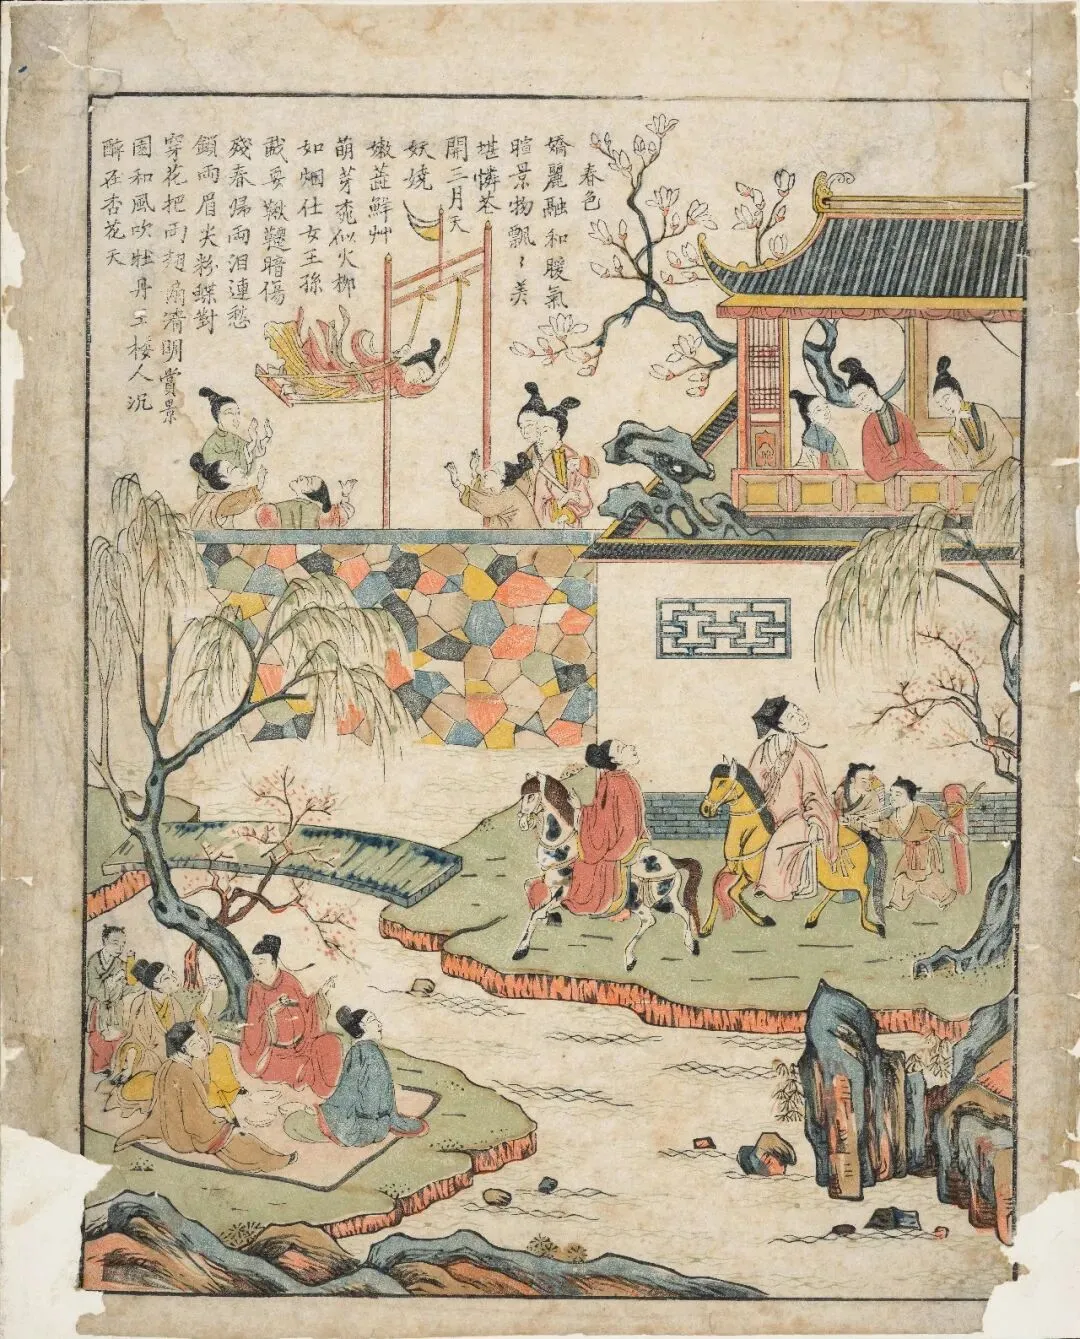 春色
嬌麗融和暖氣
暄景物飄〻美
堪憐花
開三月天
妖嬈
嫩蕋鮮艸
萌芽桃似火柳
如烟仕女王孫
戲耍鞦韆暗傷
殘春歸兩泪連愁
鎖兩眉尖粉蝶對
穿花把兩翅扇清明賞景
園和風吹牡丹玉樓人沉
醉在杏花天